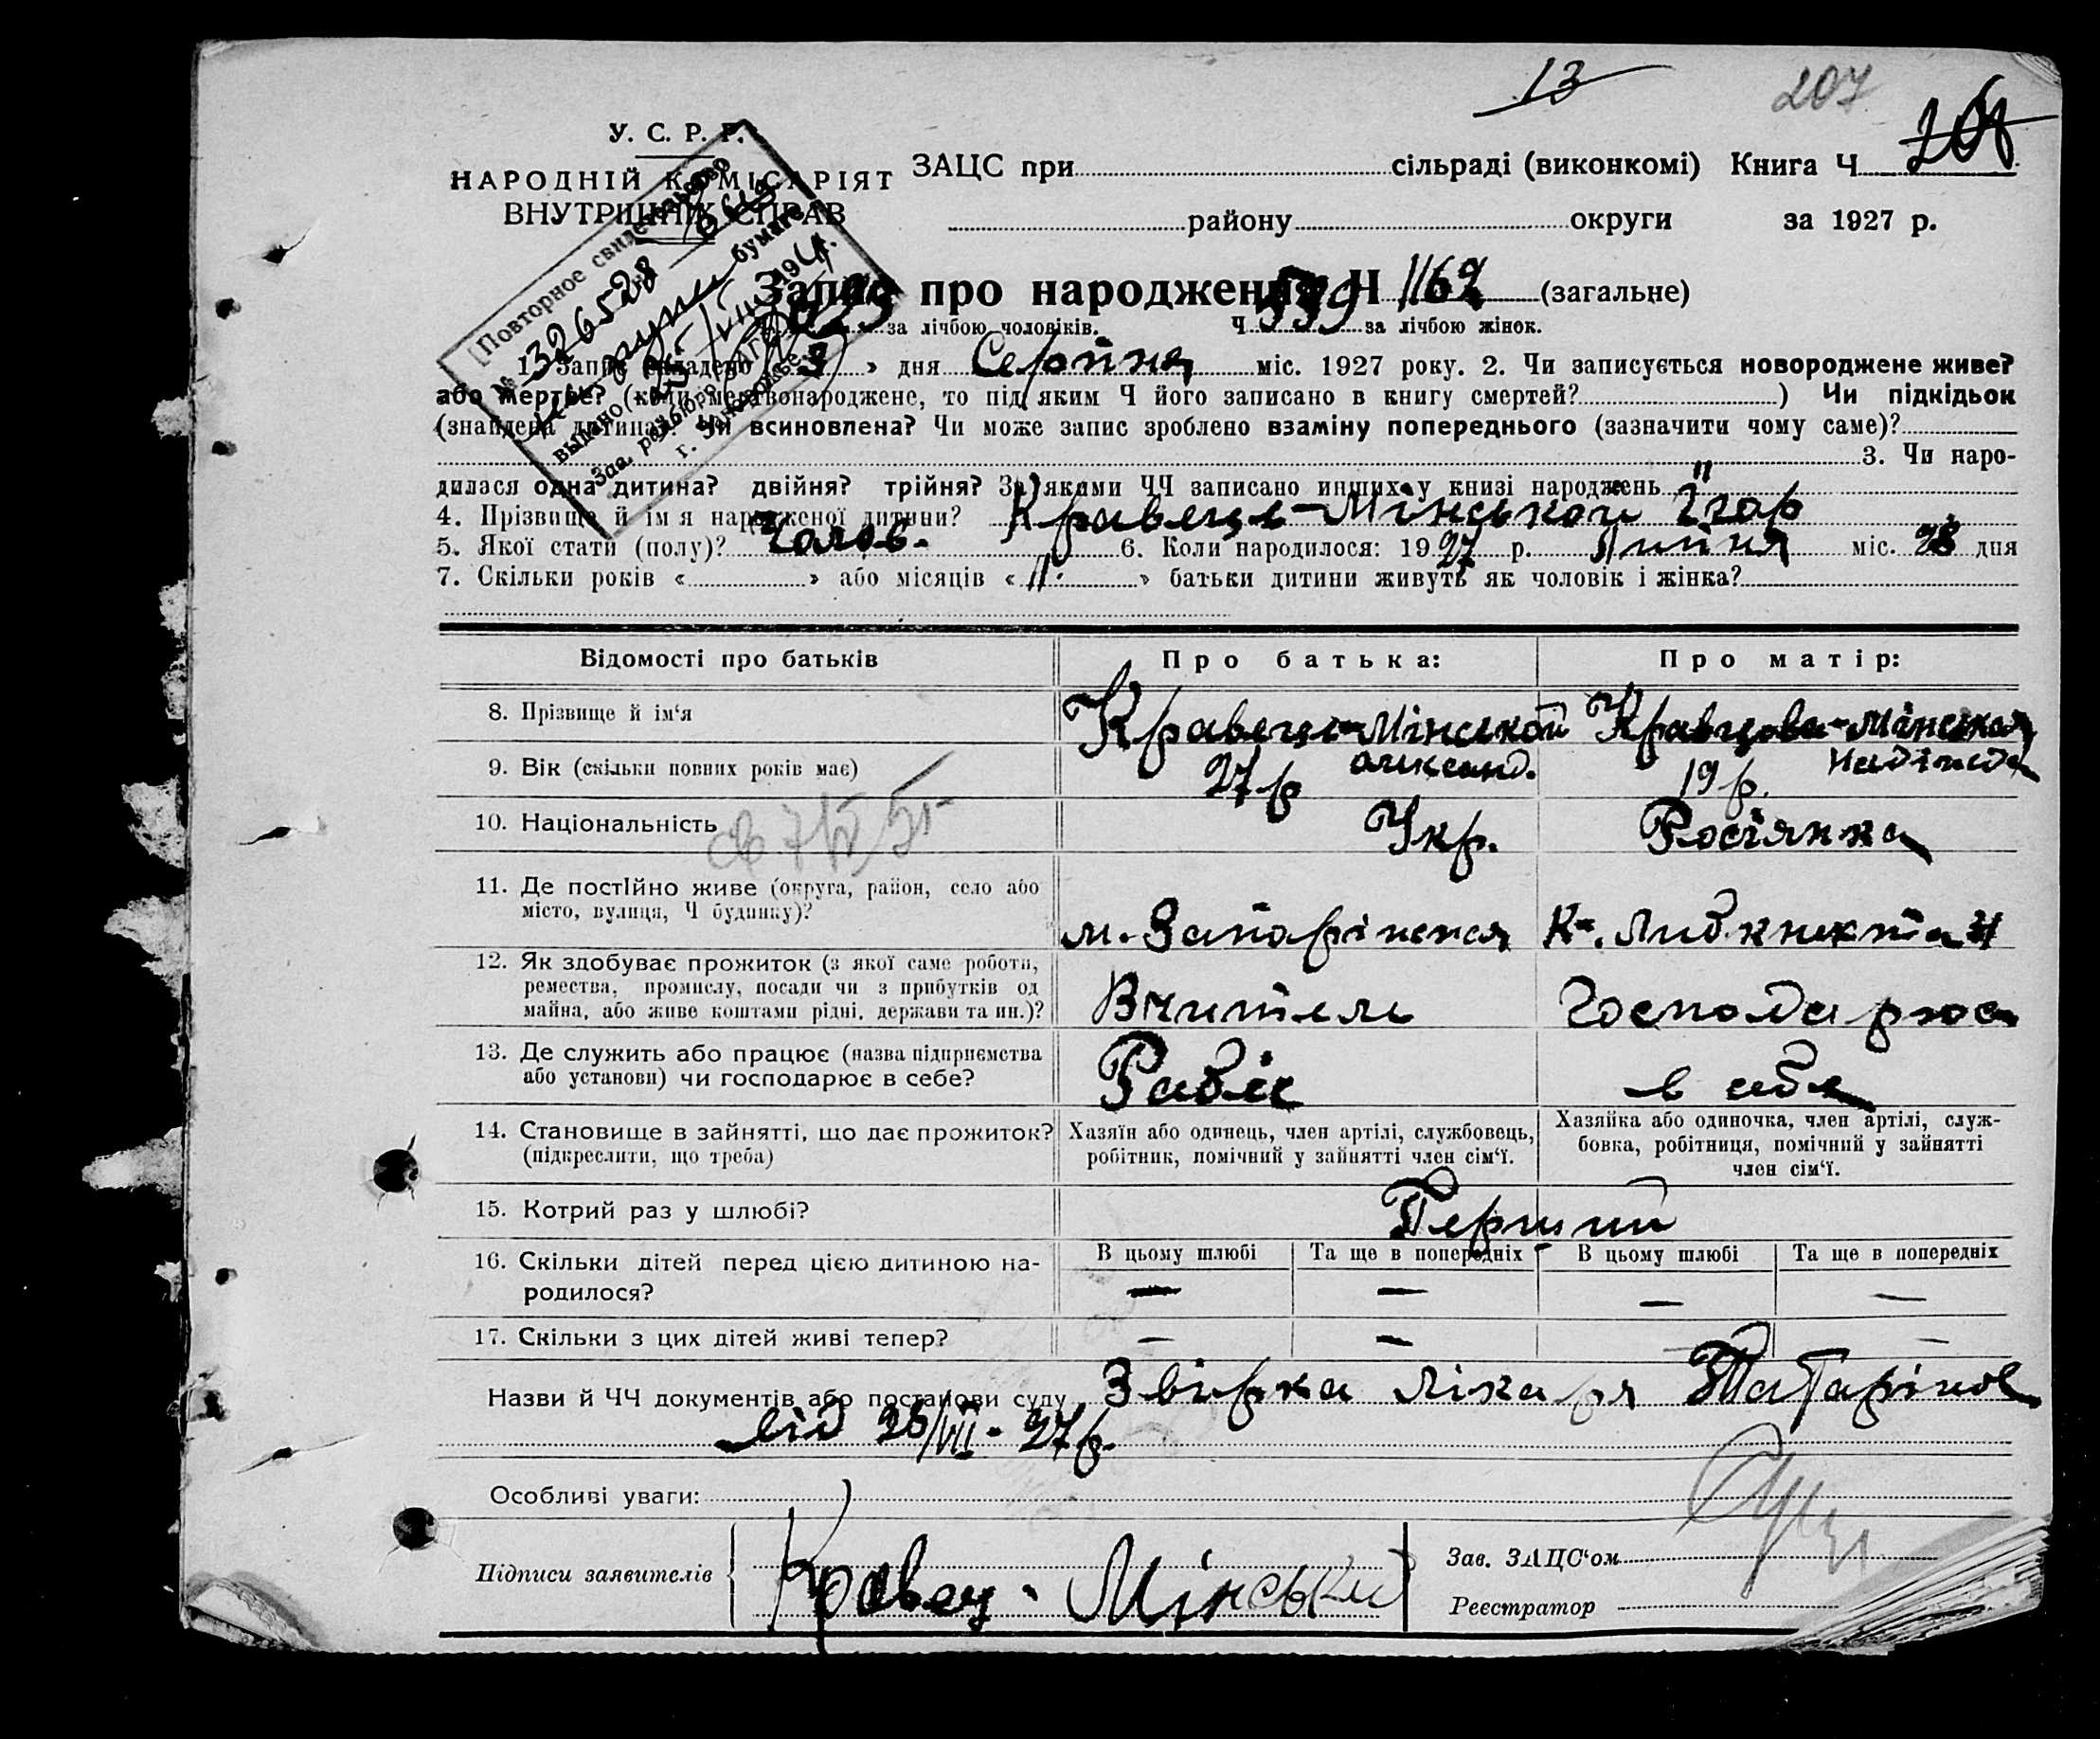 13
207
У. С. Р. Р.
НАРОДНІЙ КОМІСАРІЯТ
ВНУТРІШНІХ СПРАВ
ЗАЦС при сільраді (виконкомі) Книга Ч
району округи за 1927 р.
Повторное свидетельство
№ 326528
бумаги
выдано
Зав. райбюро ЗАГС
г. Запорожье
Запис про народження Ч 1162 (загальне)
за лічбою чоловіків. Ч 539 за лічбою жінок.
1. Запис складено « 3 » дня Серпня міс. 1927 року. 2. Чи записується новороджене живе?
або мертве? (коли мертвонароджене, то під яким Ч його записано в книгу смертей? ) Чи підкідьок
(знайдена дитина)? Чи всиновлена? Чи може запис зроблено взаміну попереднього (зазначити чому саме)?
3. Чи наро-
дилася одна дитина? двійня? трійня? За якими ЧЧ записано инших у книзі народжень
4. Прізвище й ім'я народженої дитини? Кравець-Мінськой Ігор
5. Якої стати (полу)? Чолов. 6. Коли народилося: 1927 р. Липня міс. 28 дня
7. Скільки років « » або місяців « 11. » батьки дитини живуть як чоловік і жінка?
Відомості про батьків Про батька: Про матір:
8. Прізвище й ім'я Кравець-Мінськой Олександ. Кравцова-Мінська Надіжда
9. Вік (скільки повних років має) 27 р 19 р.
10. Національність Укр. Росіянка
11. Де постійно живе (округа, район, село або
місто, вулиця, Ч будинку)? м. Запоріжжя К. Либкнехта 4
12. Як здобуває прожиток (з якої саме роботи,
ремества, промислу, посади чи з прибутків од
майна, або живе коштами рідні, держави та ин.)? Вчитель Господарює
13. Де служить або працює (назва підприємства
або установи) чи господарює в себе? Рабіс в себе
14. Становище в зайнятті, що дає прожиток?
(підкреслити, що треба)
Хазяїн або одинець, член артілі, службовець,
робітник, помічний у зайнятті член сім'ї.
Хазяйка або одиночка, член артілі, служ-
бовка, робітниця, помічний у зайнятті
член сім'ї.
15. Котрий раз у шлюбі? Перший
16. Скільки дітей перед цією дитиною на-
родилося?
В цьому шлюбі Та ще в попередніх В цьому шлюбі Та ще в попередніх
— — — —
17. Скільки з цих дітей живі тепер? — — — —
Назви й ЧЧ документів або постанови суду Звірка лікаря Татарінов
від 28/VII - 27 р.
Особливі уваги:
Підписи заявителів Кравец-Мінський
Зав. ЗАЦС'ом
Реєстратор